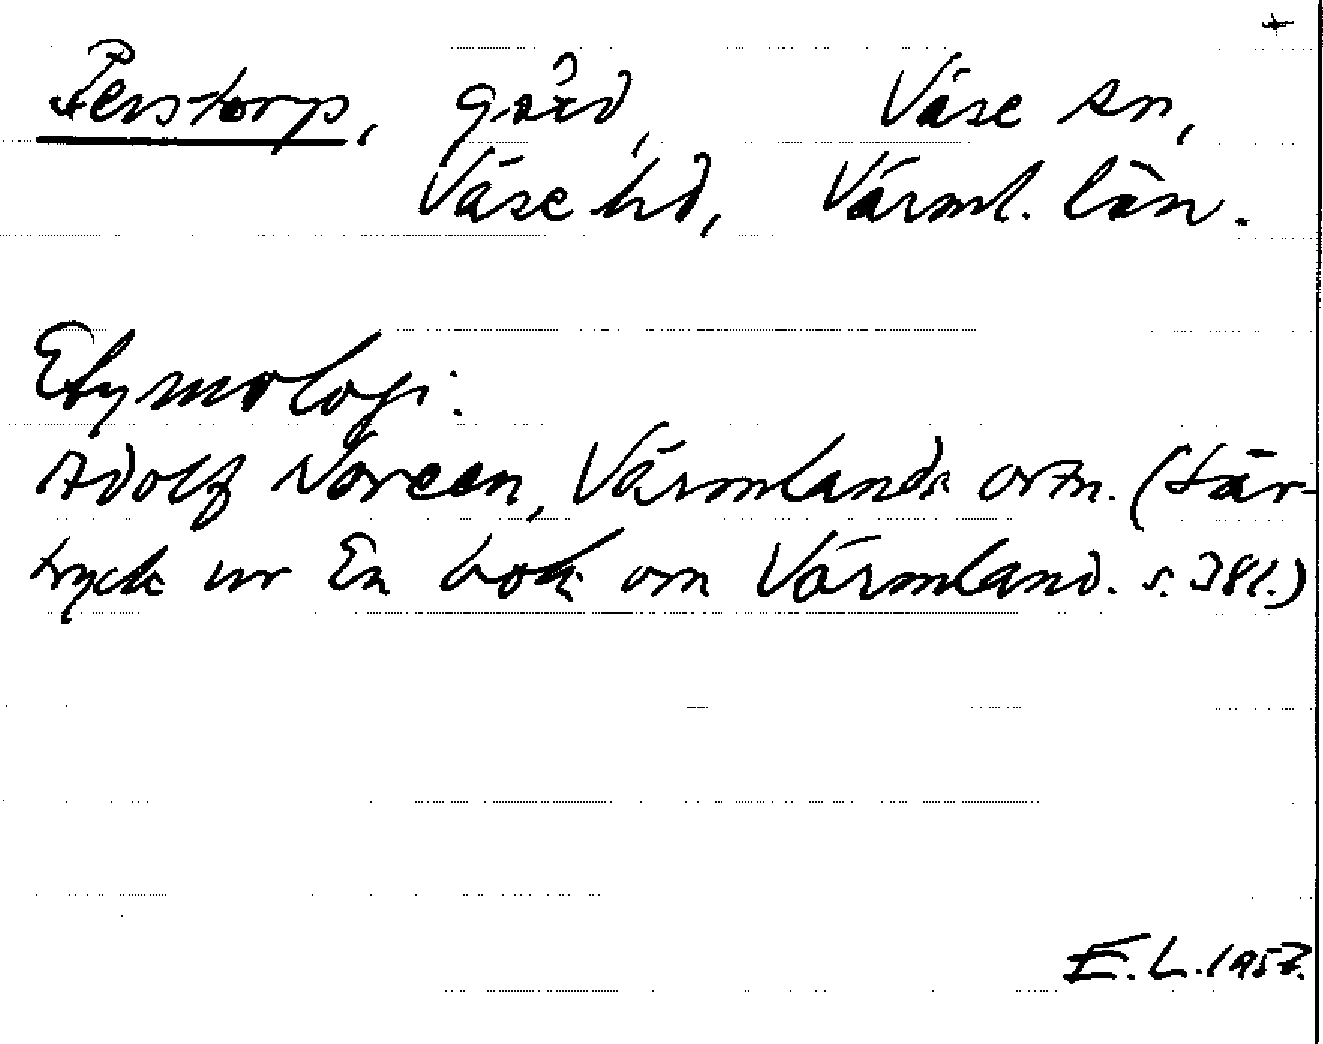 Perstorp, gård, Väse sn,
Väse hd, Värml. län.
Etymologi:
Adolf Noreen, Värmlands ortn. (Sär-
tryck ur En bok om Värmland. s. 381.)
E.L. 1957.